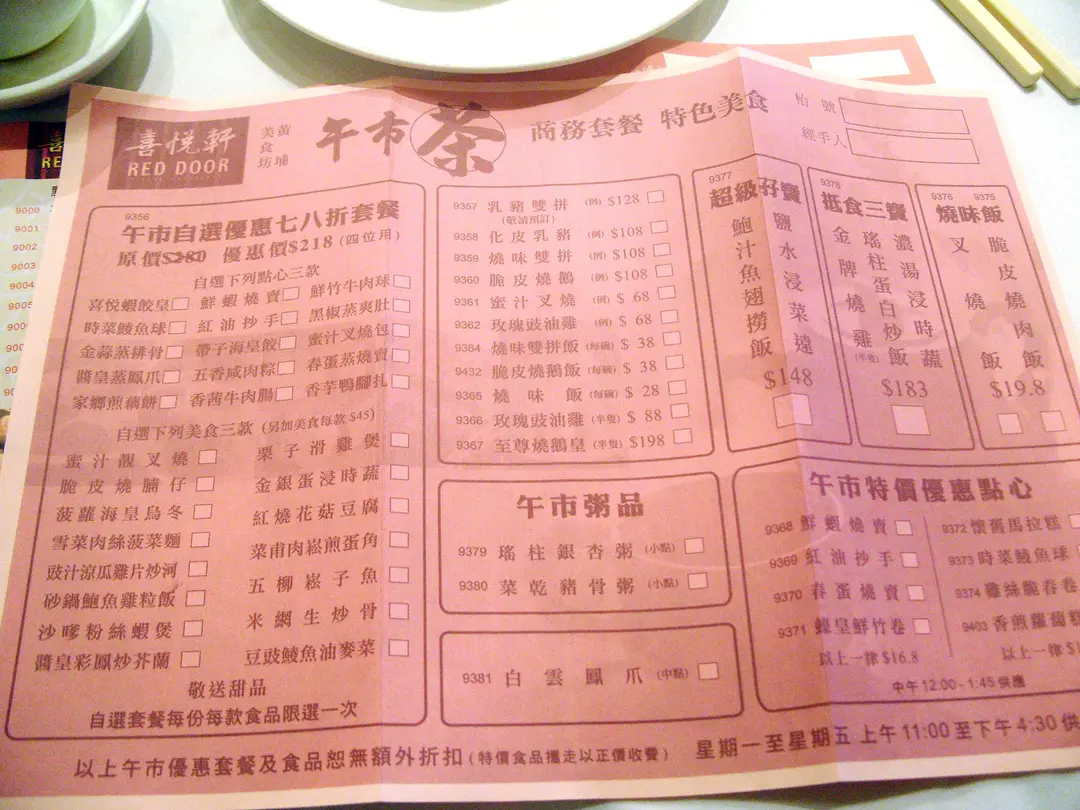 喜悅軒
RED DOOR
黃埔
美食坊
午市茶
商務套餐 特色美食
枱號
經手人
9356
午市自選優惠七八折套餐
原價$280 優惠價$218 (四位用)
自選下列點心三款
喜悅蝦餃皇 鮮蝦燒賣 鮮竹牛肉球
時菜鯪魚球 紅油抄手 黑椒蒸爽肚
金蒜蒸排骨 帶子海皇餃 蜜汁叉燒包
醬皇蒸鳳爪 五香咸肉粽 春蛋蒸燒賣
家鄉煎藕餅 香茜牛肉腸 香芋鴨腳扎
自選下列美食三款 (另加美食每款 $45)
蜜汁靚叉燒 栗子滑雞煲
脆皮燒腩仔 金銀蛋浸時蔬
菠蘿海皇烏冬 紅燒花菇豆腐
雪菜肉絲菠菜麵 菜甫肉崧煎蛋角
豉汁涼瓜雞片炒河 五柳崧子魚
砂鍋鮑魚雞粒飯 米網生炒骨
沙嗲粉絲蝦煲 豆豉鯪魚油麥菜
醬皇彩鳳炒芥蘭
敬送甜品
自選套餐每份每款食品限選一次
9357 乳豬雙拼 (例) $128
(敬請預訂)
9358 化皮乳豬 (例) $108
9359 燒味雙拼 (例) $108
9360 脆皮燒鵝 (例) $108
9361 蜜汁叉燒 (例) $ 68
9362 玫瑰豉油雞 (例) $ 68
9364 燒味雙拼飯 (每碗) $ 38
9432 脆皮燒鵝飯 (每碗) $ 38
9365 燒味飯 (每碗) $ 28
9366 玫瑰豉油雞 (半隻) $ 88
9367 至尊燒鵝皇 (半隻) $198
午市粥品
9379 瑤柱銀杏粥 (小點)
9380 菜乾豬骨粥 (小點)
9381 白雲鳳爪 (中點)
9377
超級孖寶
鹽水浸菜遠
鮑汁魚翅撈飯
$148
9378
抵食三寶
濃湯浸時蔬
瑤柱蛋白炒飯
金牌燒雞 (半隻)
$183
9376 9375
燒味飯
脆皮燒肉飯
叉燒飯
$19.8
午市特價優惠點心
9368 鮮蝦燒賣 9372 懷舊馬拉糕
9369 紅油抄手 9373 時菜鯪魚球
9370 春蛋燒賣 9374 雞絲脆春卷
9371 蠔皇鮮竹卷 9403 香煎蘿蔔糕
以上一律 $16.8 以上一律
中午 12:00 - 1:45 供應
以上午市優惠套餐及食品恕無額外折扣 (特價食品攜走以正價收費) 星期一至星期五 上午 11:00 至下午 4:30 供
RE
9000
9001
9002
9003
9004
9005